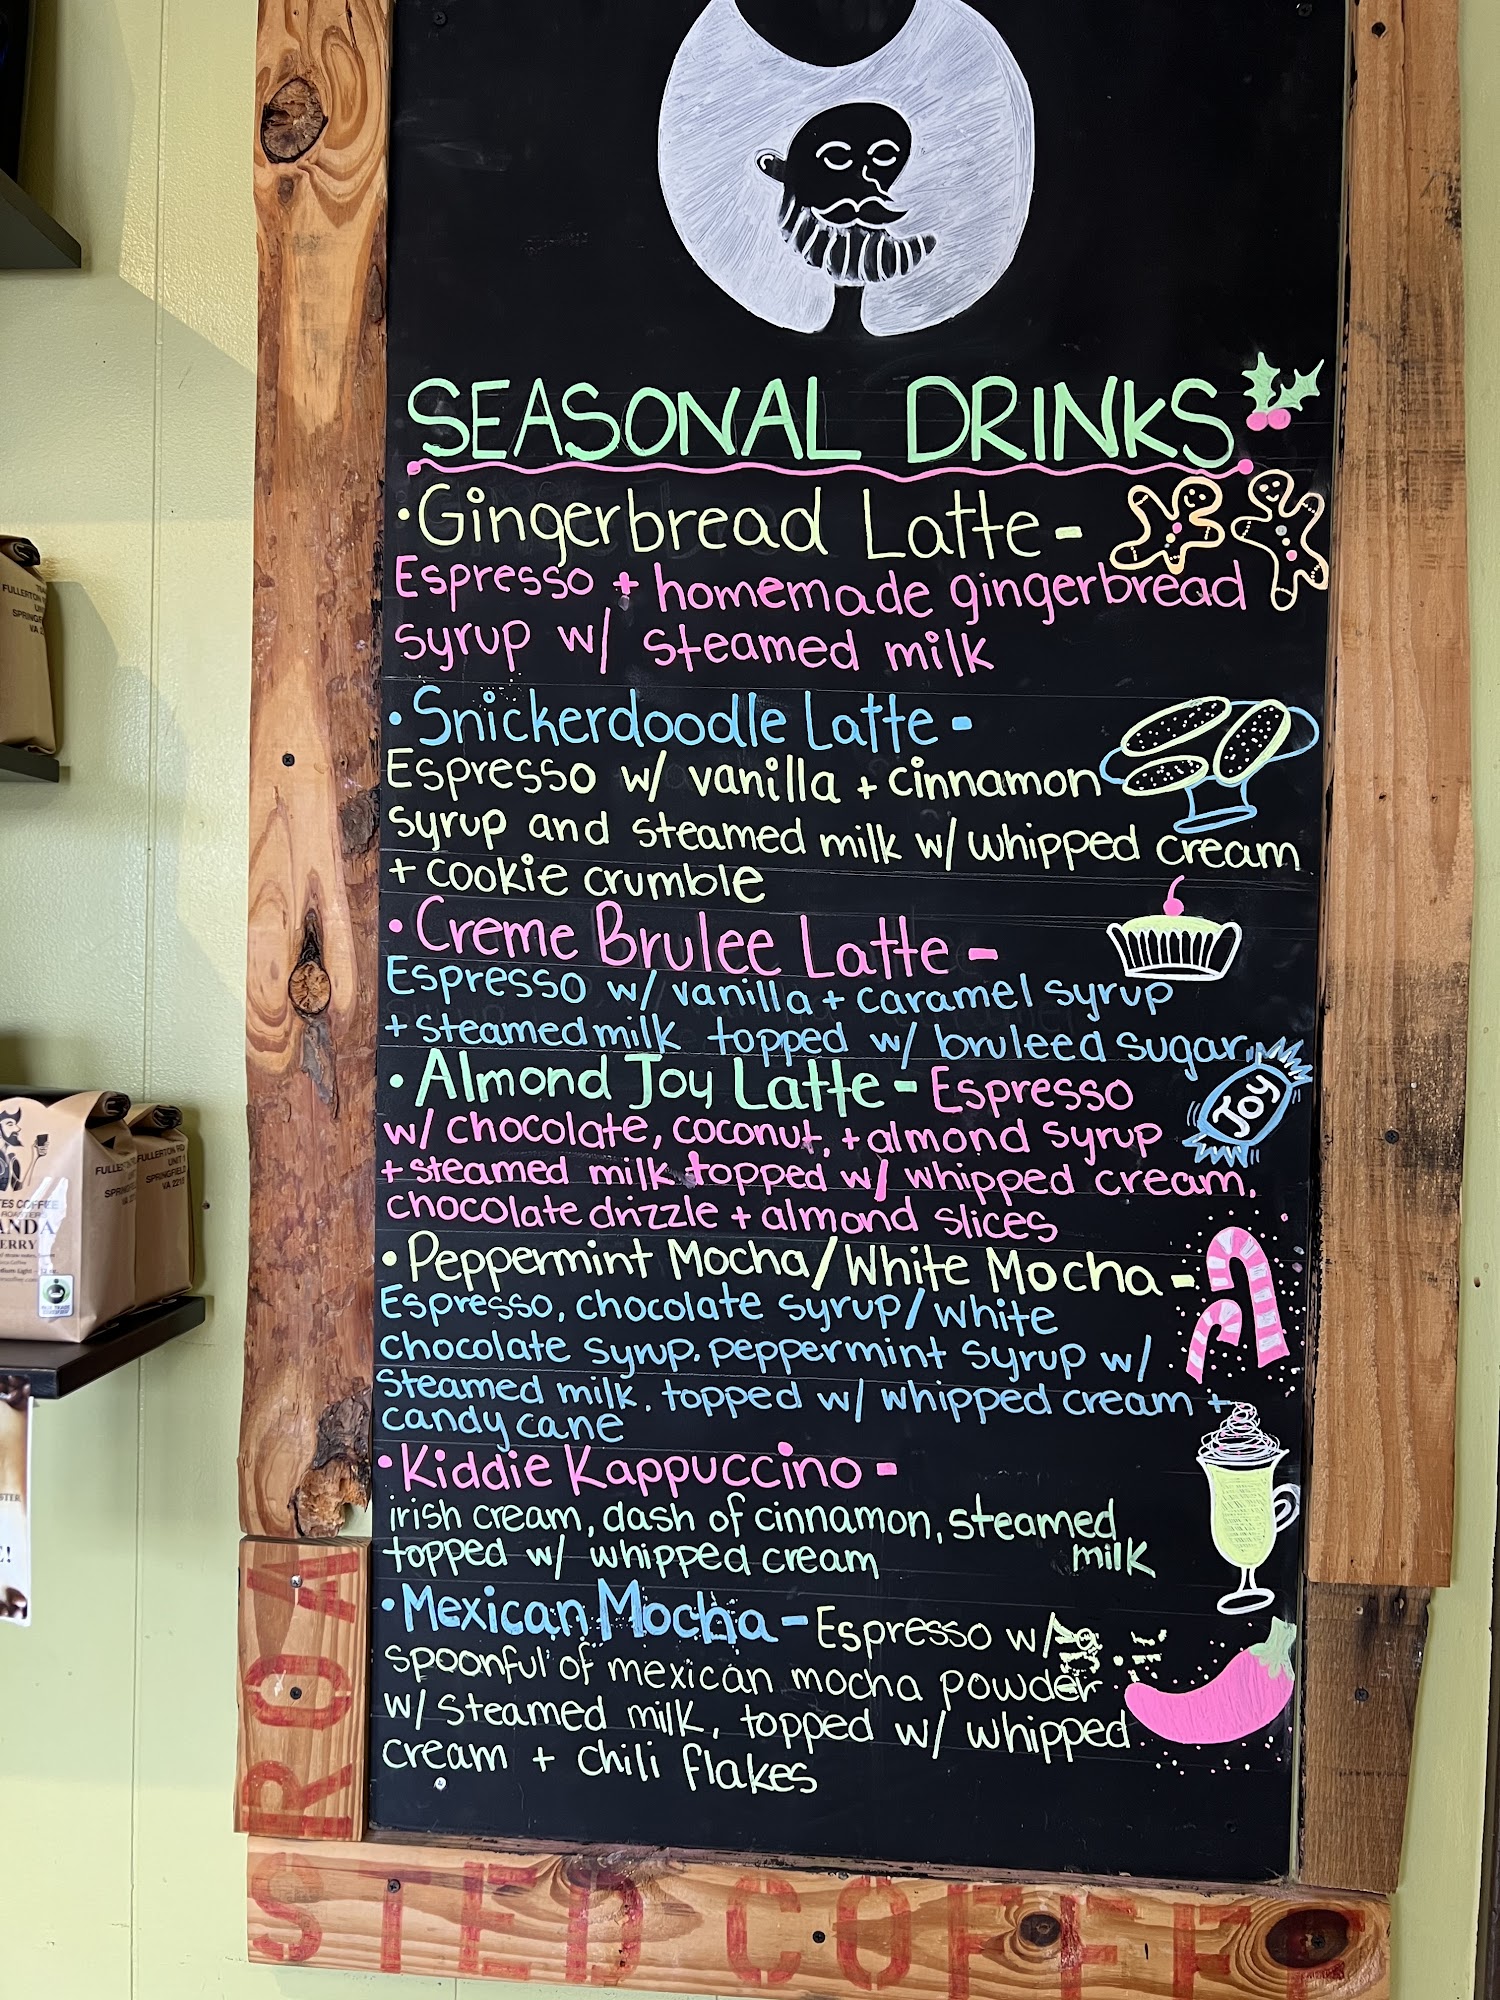 SEASONAL DRINKS
• Gingerbread Latte -
Espresso + homemade gingerbread
syrup w/ steamed milk
• Snickerdoodle Latte -
Espresso w/ vanilla + cinnamon
syrup and steamed milk w/ whipped cream
+ cookie crumble
• Creme Brulee Latte -
Espresso w/ vanilla + caramel syrup
+ steamed milk topped w/ bruleed sugar
• Almond Joy Latte - Espresso
w/ chocolate, coconut, + almond syrup
+ steamed milk topped w/ whipped cream,
chocolate drizzle + almond slices
JOY
• Peppermint Mocha/White Mocha -
Espresso, chocolate syrup/white
chocolate syrup, peppermint syrup w/
steamed milk, topped w/ whipped cream +
candy cane
• Kiddie Kappuccino -
irish cream, dash of cinnamon, steamed
milk
topped w/ whipped cream
• Mexican Mocha - Espresso w/ a
spoonful of mexican mocha powder
w/ steamed milk, topped w/ whipped
cream + chili flakes
ROA
STED COFFEE
FULLERTON
UNIT
SPRINGF
FULLERTON RD
UNIT 1
SPRINGFIELD
VA 221
TES COFFEE
ROASTERS
ANDA
ERRY